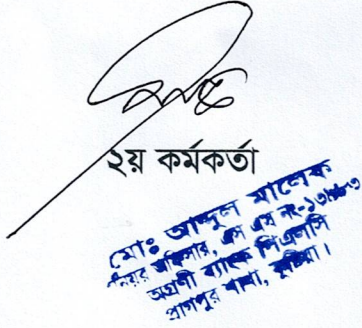 ২য় কর্মকর্তা
মোঃ আব্দুল মালেক
সিনিয়র অফিসার, এস এস নং-১৩
অগ্রণী ব্যাংক পিএলসি
প্রাগপুর শাখা, কুষ্টিয়া।